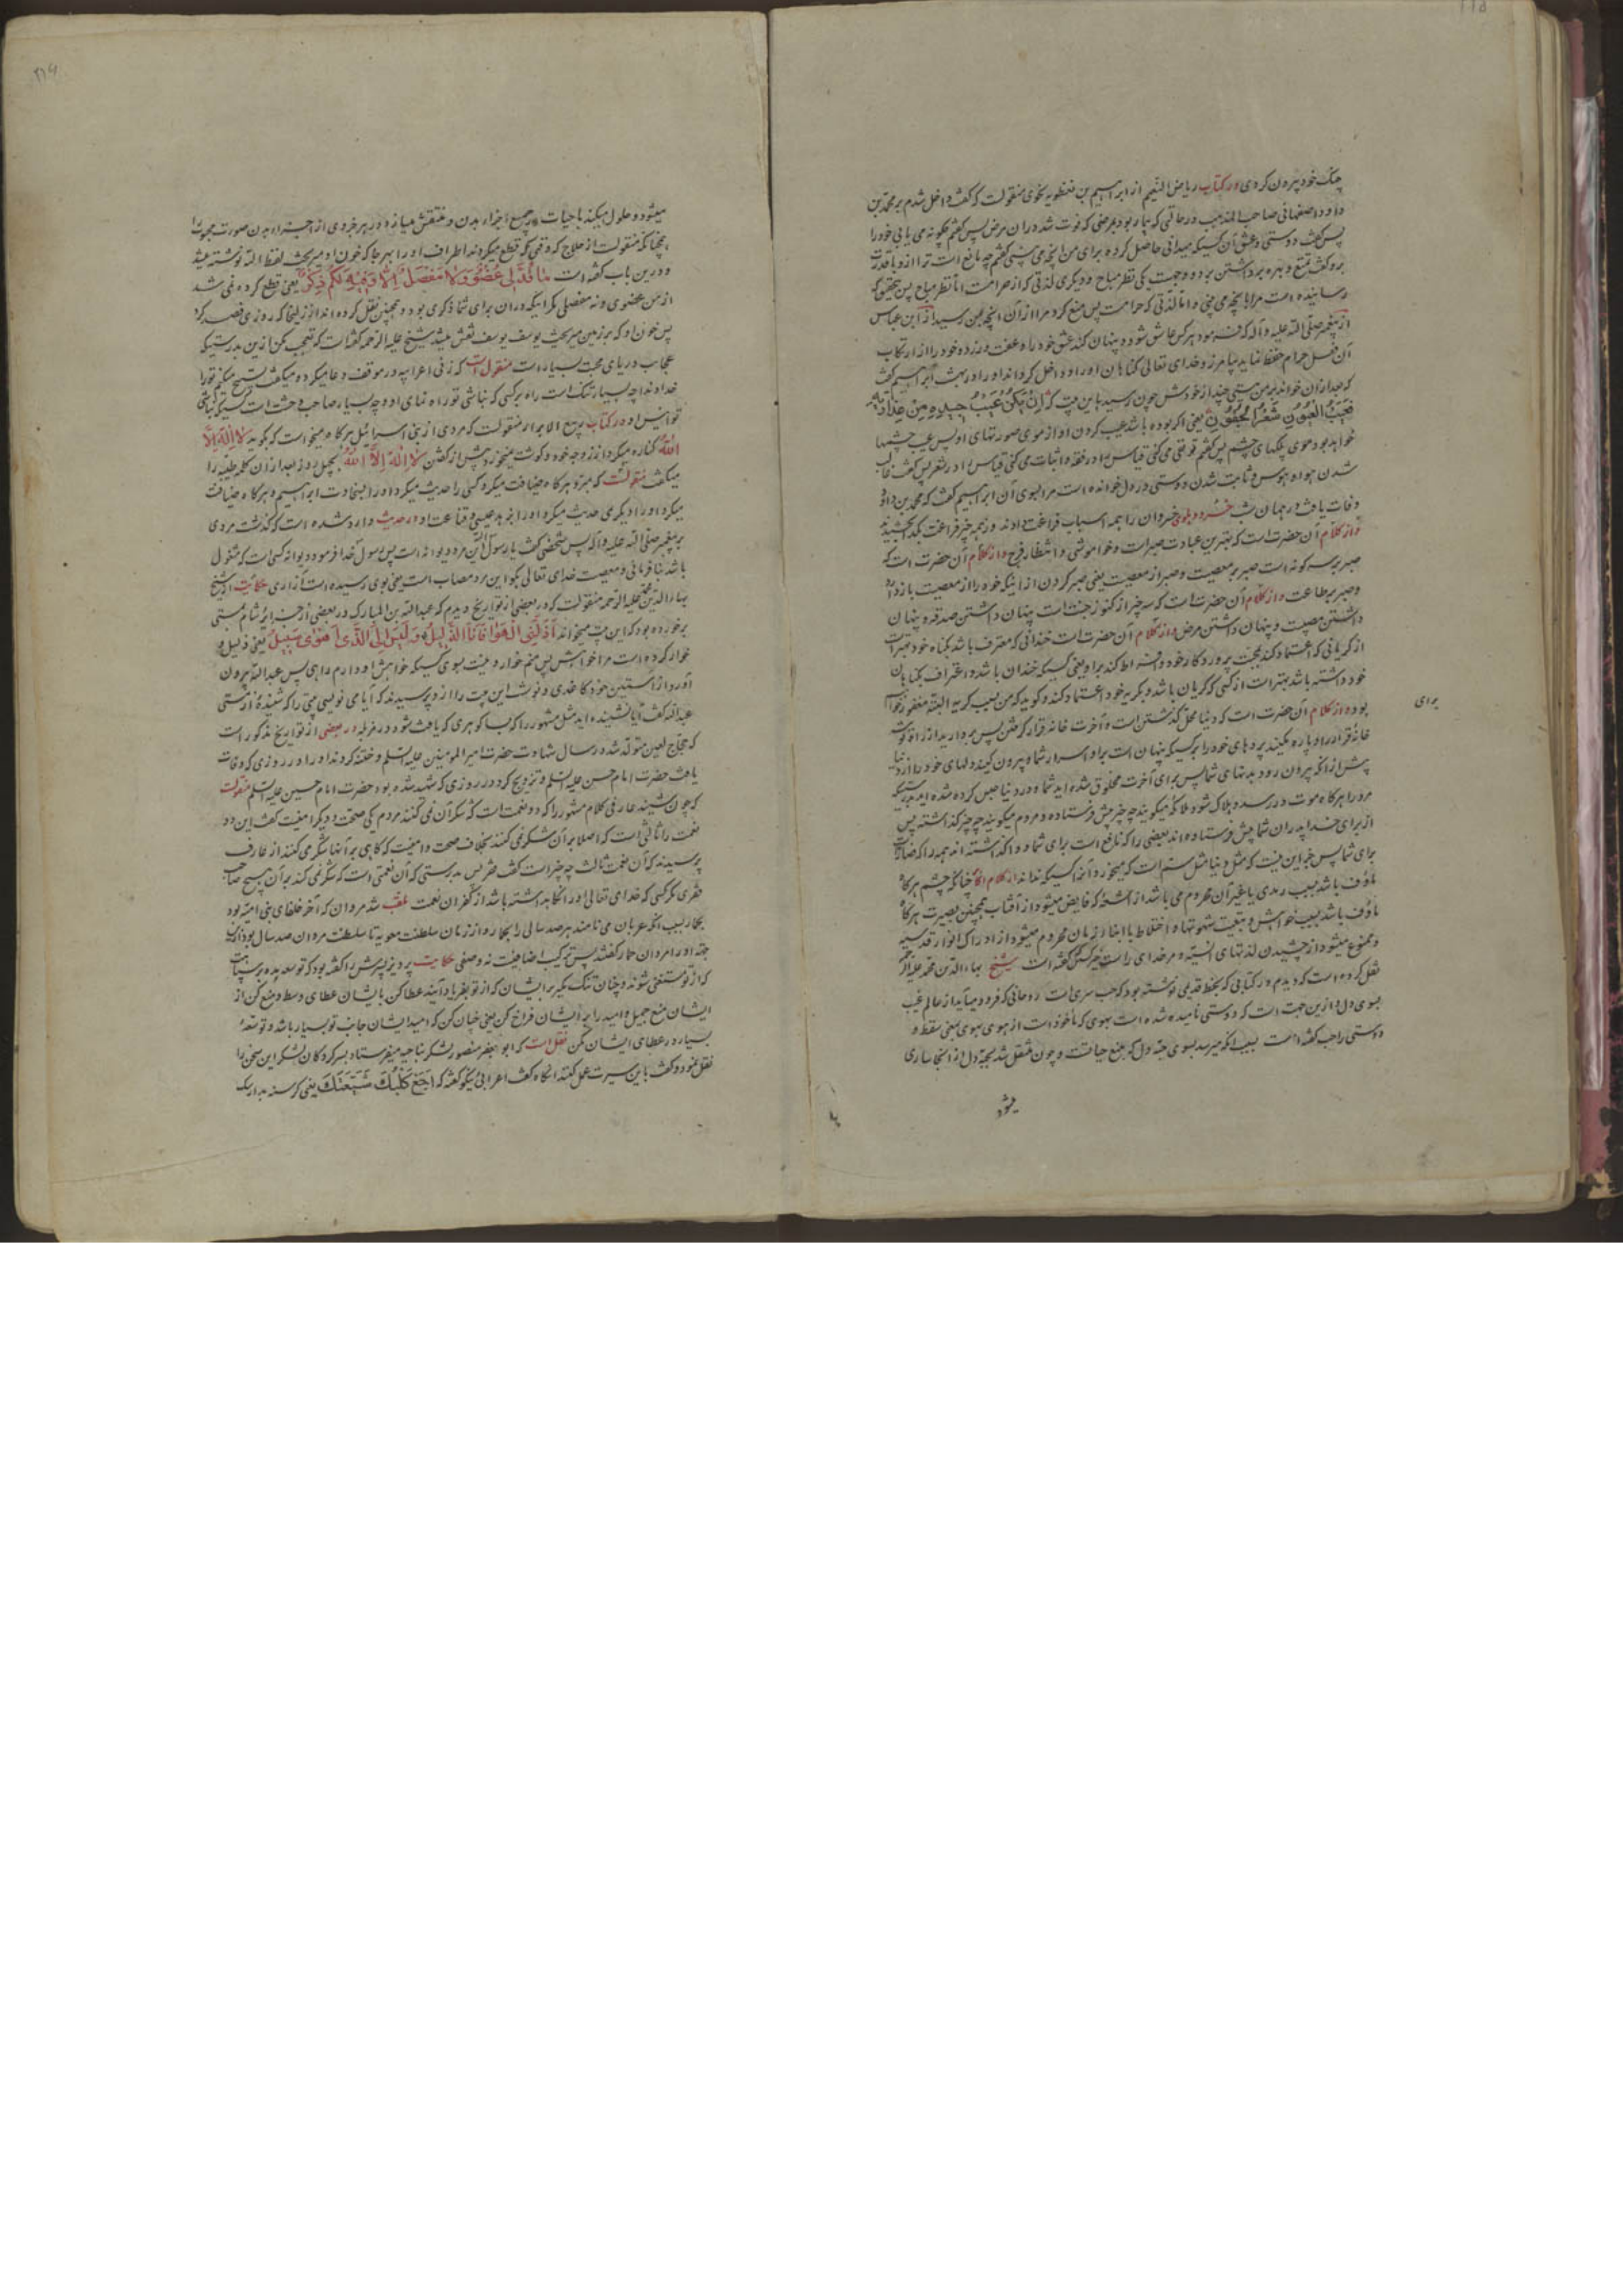 چنک خود بیرون کردی در کتاب ریاض النعیم از ابراهیم بن نفطویه نحوی منقولست که کفت داخل شدم بر محمد بن
داود اصفهانی صاحب المذهب در حالتی که بیمار بود بمرضی که فوت شد در ان مرض پس کفتم چکونه می یابی خود را
پس کفت دوستی و عشق آن کسیکه میدانی حاصل کرده برای من انچه می بینی کفتم چه مانع است ترا از و با قدرت
برو کفت تمتع و بهره برداشتن برد و وجهست یکی نظر مباح و دیگری لذتی که از حرامست اما نظر مباح پس بتحقیق که
رسانیده است مرا بانچه می بینی و اما لذتی که حرامست پس منع کرد مرا از آن انچه بمن رسید از ابن عباس
از پیغمبر صلی الله علیه و آله که فرمود هر کس عاشق شود و پنهان کند عشق خود را و عفت ورزد و خود را از ارتکاب
آن فعل حرام حفظ نماید بیامرزد خدای تعالی کناهان او را و داخل کرداند او را در بهشت ابراهیم کفت
که بعد از ان خواند بر من بیتی چند از خودش چون رسید باین بیت که ان یکن عیب
فعیب العیون شعر الجفون یعنی اکر بوده باشد عیب کردن او از موی صورتهای او پس عیب چشمها
خواهد بود موی پلکهای چشم پس کفتم تو نفی می کنی قیاس را در فقه و اثبات می کنی قیاس را در شعر پس کفت غالب
شدن هوا و هوس و ثابت شدن دوستی در دل خوانده است مرا بسوی آن ابراهیم کفت که محمد بن داود
وفات یافت در همان شب خسرو دهلوی خسروان را همه اسباب فراغت دادند
و از کلام آن حضرت است که بهترین عبادت صبر است و خاموشی و انتظار فرج و از کلام آن حضرت است که
صبر بر سه کونه است صبر بر معصیت و صبر از معصیت یعنی صبر کردن از اینکه خود را از معصیت باز دارد
و صبر بر طاعت و از کلام آن حضرت است که سه چیز از کنوز جنت است پنهان داشتن صدقه و پنهان
داشتن مصیبت و پنهان داشتن مرض و از کلام آن حضرت است خندانی که معترف باشد بکناه خود بهتر است
از کریانی که اعتماد کند بمحبت پروردکار خود
خود داشته باشد بهتر است از کسی که کریان باشد و بکریه خود اعتماد کند و کوید که من بسبب کریه البته مغفور خواهم
برای
بود و از کلام آن حضرت است که دنیا محل کذشتن است و آخرت خانه قرار کرفتن پس بردارید از راه توشه
خانه قرار را و پاره مکنید پردهای خود را بر کسیکه پنهان است برا و اسرار شما و بیرون کنید دلهای خود را از دنیا
پیش از انکه بیرون رود بدنهای شما پس برای آخرت مخلوق شده اید شما و در دنیا حبس کرده شده اید بدرستیکه
مرد را هرکاه موت در رسد و هلاک شود ملائکه میکویند چه چیز پیش فرستاده و مردم میکویند چه چیز کذاشته پس
از برای خدا پدران شما پیش فرستاده اند بعضی را که نافع است برای شما و وا کذاشته اند همه را که ضار است
برای شما پس جز این نیست که مثل دنیا مثل سم است که میخورد آنرا کسیکه نداند از کلام اکابر چنانکه چشم هرکاه
مأوف باشد بسبب رمدی یا غیر آن محروم می باشد از اشعه که فایض میشود از آفتاب همچنین بصیرت هرکاه
مأوف باشد بسبب خواهش و تبعیت شهوتها و اختلاط با ابنا زمان محروم میشود از ادراک انوار قدسیه
و ممنوع میشود از چشیدن لذتهای انسیه شیخ بهاء الدین محمد علیه الرحمه
نقل کرده است که دیدم در کتابی که بخط قدیمی نوشته بود که حب سری است روحانی که فرود میآید از عالم غیب
بسوی دل و ازین جهت است که دوستی نامیده شده است بهوی که مأخوذ است از هوی یهوی بمعنی سقط و
دوستی را حب کفته است بسبب انکه میرسد بسوی حبه دل که منبع حیاتست و چون متصل شد بحبه دل از انجا ساری
میشود
میشود و حلول میکند با حیات در جمیع اجزاء بدن و منتقش میسازد در هر جزوی از اجزاء بدن صورت محبوب را
چنانکه منقولست از حلاج که وقتی که قطع میکردند اطراف او را بهر جا که خون او میریخت لفظ الله نوشته میشد
و درین باب کفته است ما قد لی عضو و لا مفصل الا و فیه لکم ذکر یعنی قطع کرده نمی شد
از من عضوی و نه مفصلی مکر اینکه در ان برای شما ذکری بود و همچنین نقل کرده اند از زلیخا که روزی فصد کرد
پس خون او که بر زمین میریخت یوسف یوسف نقش میشد شیخ علیه الرحمه کفته است که تعجب مکن ازین بدرستیکه
عجایب دریای محبت بسیار است منقول است که زنی اعرابیه در موقف دعا میکرد و میکفت تسبیح میکنم ترا
خداوندا چه بسیار تنک است راه بر کسی که نباشی تو راه نمای او و چه بسیار صاحب وحشت است کسیکه نباشی
تو انیس او در کتاب ربیع الابرار منقولست که مردی از بنی اسرائیل هرکاه میخواست که بکوید لا اله الا
الله کناره میکرد از زوجه خود و کوشت نمیخورد پیش از کفتن لا اله الا الله بچهل روز بعد از ان کلمه طیبه را
میکفت منقولست که مبرد هرکاه ضیافت میکرد کسی را حدیث میکرد او را بسخاوت ابراهیم و هرکاه ضیافت
میکرد او را دیگری حدیث میکرد او را بزهد عیسی و قناعت او در حدیث وارد شده است که کذشت مردی
بر پیغمبر صلی الله علیه و آله پس شخصی کفت یا رسول الله این مرد دیوانه است پس رسول خدا فرمود دیوانه کسی است که مشغول
باشد بنافرمانی و معصیت خدای تعالی بکو این مرد مصاب است یعنی بوی رسیده است آزاری حکایت از شیخ
بهاء الدین محمد علیه الرحمه منقولست که در بعضی از تواریخ دیدم که عبد الله بن المبارک در بعضی از جزایر شام بمستی
برخورده بود که این بیت میخواند اذلنی الهوا فانا الذلیل و لیس الی الذی اهوی سبیل یعنی ذلیل و
خوار کرده است مرا خواهش پس منم خوار و نیست بسوی کسیکه خواهش او دارم راهی پس عبد الله بیرون
آورد از آستین خود کاغذی و نوشت این بیت را از و پرسیدند که آیا می نویسی بیتی را که شنیدهٔ از مستی
عبد الله کفت آیا نشنیده اید مثل مشهور را که بسا کوهری که یافت شود در مزبله در بعضی از تواریخ مذکور است
که حجاج لعین متولد شد در سال شهادت حضرت امیر المومنین علیه السلم و ختنه کردند او را در روزی که وفات
یافت حضرت امام حسن علیه السلم و تزویج کرد در روزی که شهید شده بود حضرت امام حسین علیه السلم منقولست
که چون شنید عارفی کلام مشهور را که دو نعمت است که شکر آن نمی کنند مردم یکی صحت و دیکر امنیت کفت این دو
نعمت را ثالثی است که اصلا بر آن شکر نمی کنند بخلاف صحت و امنیت که کاهی بر آنها شکر می کنند از عارف
پرسیدند که آن نعمت ثالث چه چیز است کفت فقر پس بدرستی که آن نعمتی است که شکر نمی کند بر آن هیچ صاحب
فقری مکر کسی که خدای تعالی او را نکاه داشته باشد از کفران نعمت ملقب شد مروان که آخر خلفای بنی امیه بود
بحمار بسبب انکه عربان می نامند هر صد سالی را بحمار و از زمان سلطنت معویه تا سلطنت مروان صد سال بود ازین
جهت او را مروان حمار کفتند پس ترکیب اضافیست نه وصفی حکایت پرویز پسرش را کفته بود که توسعه مده بر سپاهت
که از تو مستغنی شوند و چنان تنک مکیر بر ایشان که از تو بفریاد آیند عطا کن بایشان عطای وسط و منع کن از
ایشان منع جمیل و امید را بر ایشان فراخ کن یعنی چنان کن که امید ایشان جانب تو بسیار باشد و توسعهٔ
بسیار در عطای ایشان مکن نقل است که ابو جعفر منصور لشکر بناحیه میفرستاد بسرکردکان لشکر این سخن را
نقل نمود و کفت باین سیرت عمل کنید انکاه کفت اعرابی نیکو کفته که اجع کلبک یتبعک یعنی کرسنه بدار سک